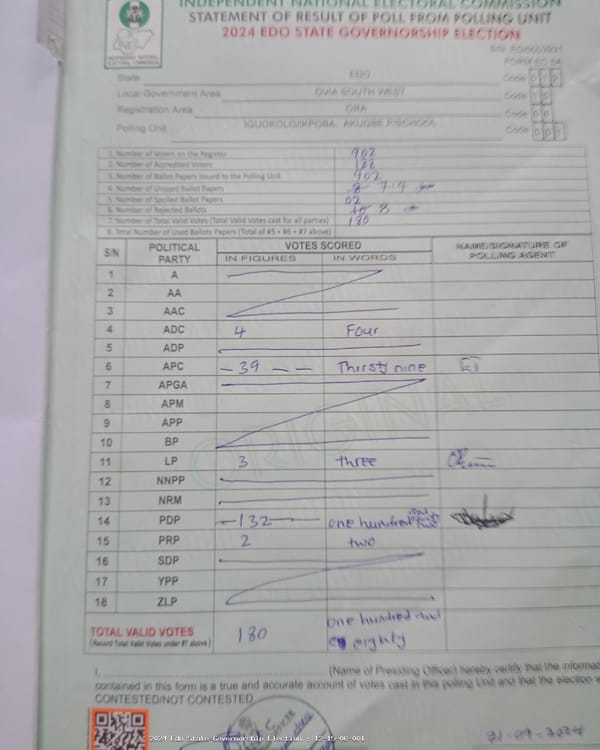 INDEPENDENT NATIONAL ELECTORAL COMMISSION
STATEMENT OF RESULT OF POLL FROM POLLING UNIT
2024 EDO STATE GOVERNORSHIP ELECTION
State EDO Code
Local Government Area OVIA SOUTH WEST Code
Registration Area ORA Code
Polling Unit IGUOKOLO/IKPOBA, AKUGBE P/SCHOOL Code
1. Number of Voters on the Register 902
2. Number of Accredited Voters
3. Number of Ballot Papers Issued to the Polling Unit 902
4. Number of Unused Ballot Papers 714
5. Number of Spoiled Ballot Papers 02
6. Number of Rejected Ballots 8
7. Number of Total Valid Votes (Total Valid Votes cast for all parties) 180
8. Total Number of Used Ballots Papers (Total of #5 + #6 + #7 above)
S/N POLITICAL PARTY VOTES SCORED NAME/SIGNATURE OF POLLING AGENT
IN FIGURES IN WORDS
1 A
2 AA
3 AAC
4 ADC 4 Four
5 ADP
6 APC 39 Thirsty nine
7 APGA
8 APM
9 APP
10 BP
11 LP 3 three
12 NNPP
13 NRM
14 PDP 132 one hundred
15 PRP 2 two
16 SDP
17 YPP
18 ZLP
TOTAL VALID VOTES 180 one hundred and eighty
(Record Total Valid Votes under #7 above)
ORIGINAL
I, (Name of Presiding Officer) hereby certify that the
contained in this form is a true and accurate account of votes cast in this polling Unit and that the election
CONTESTED/NOT CONTESTED
2024 Edo State Governorship Election : 12-15-06-001